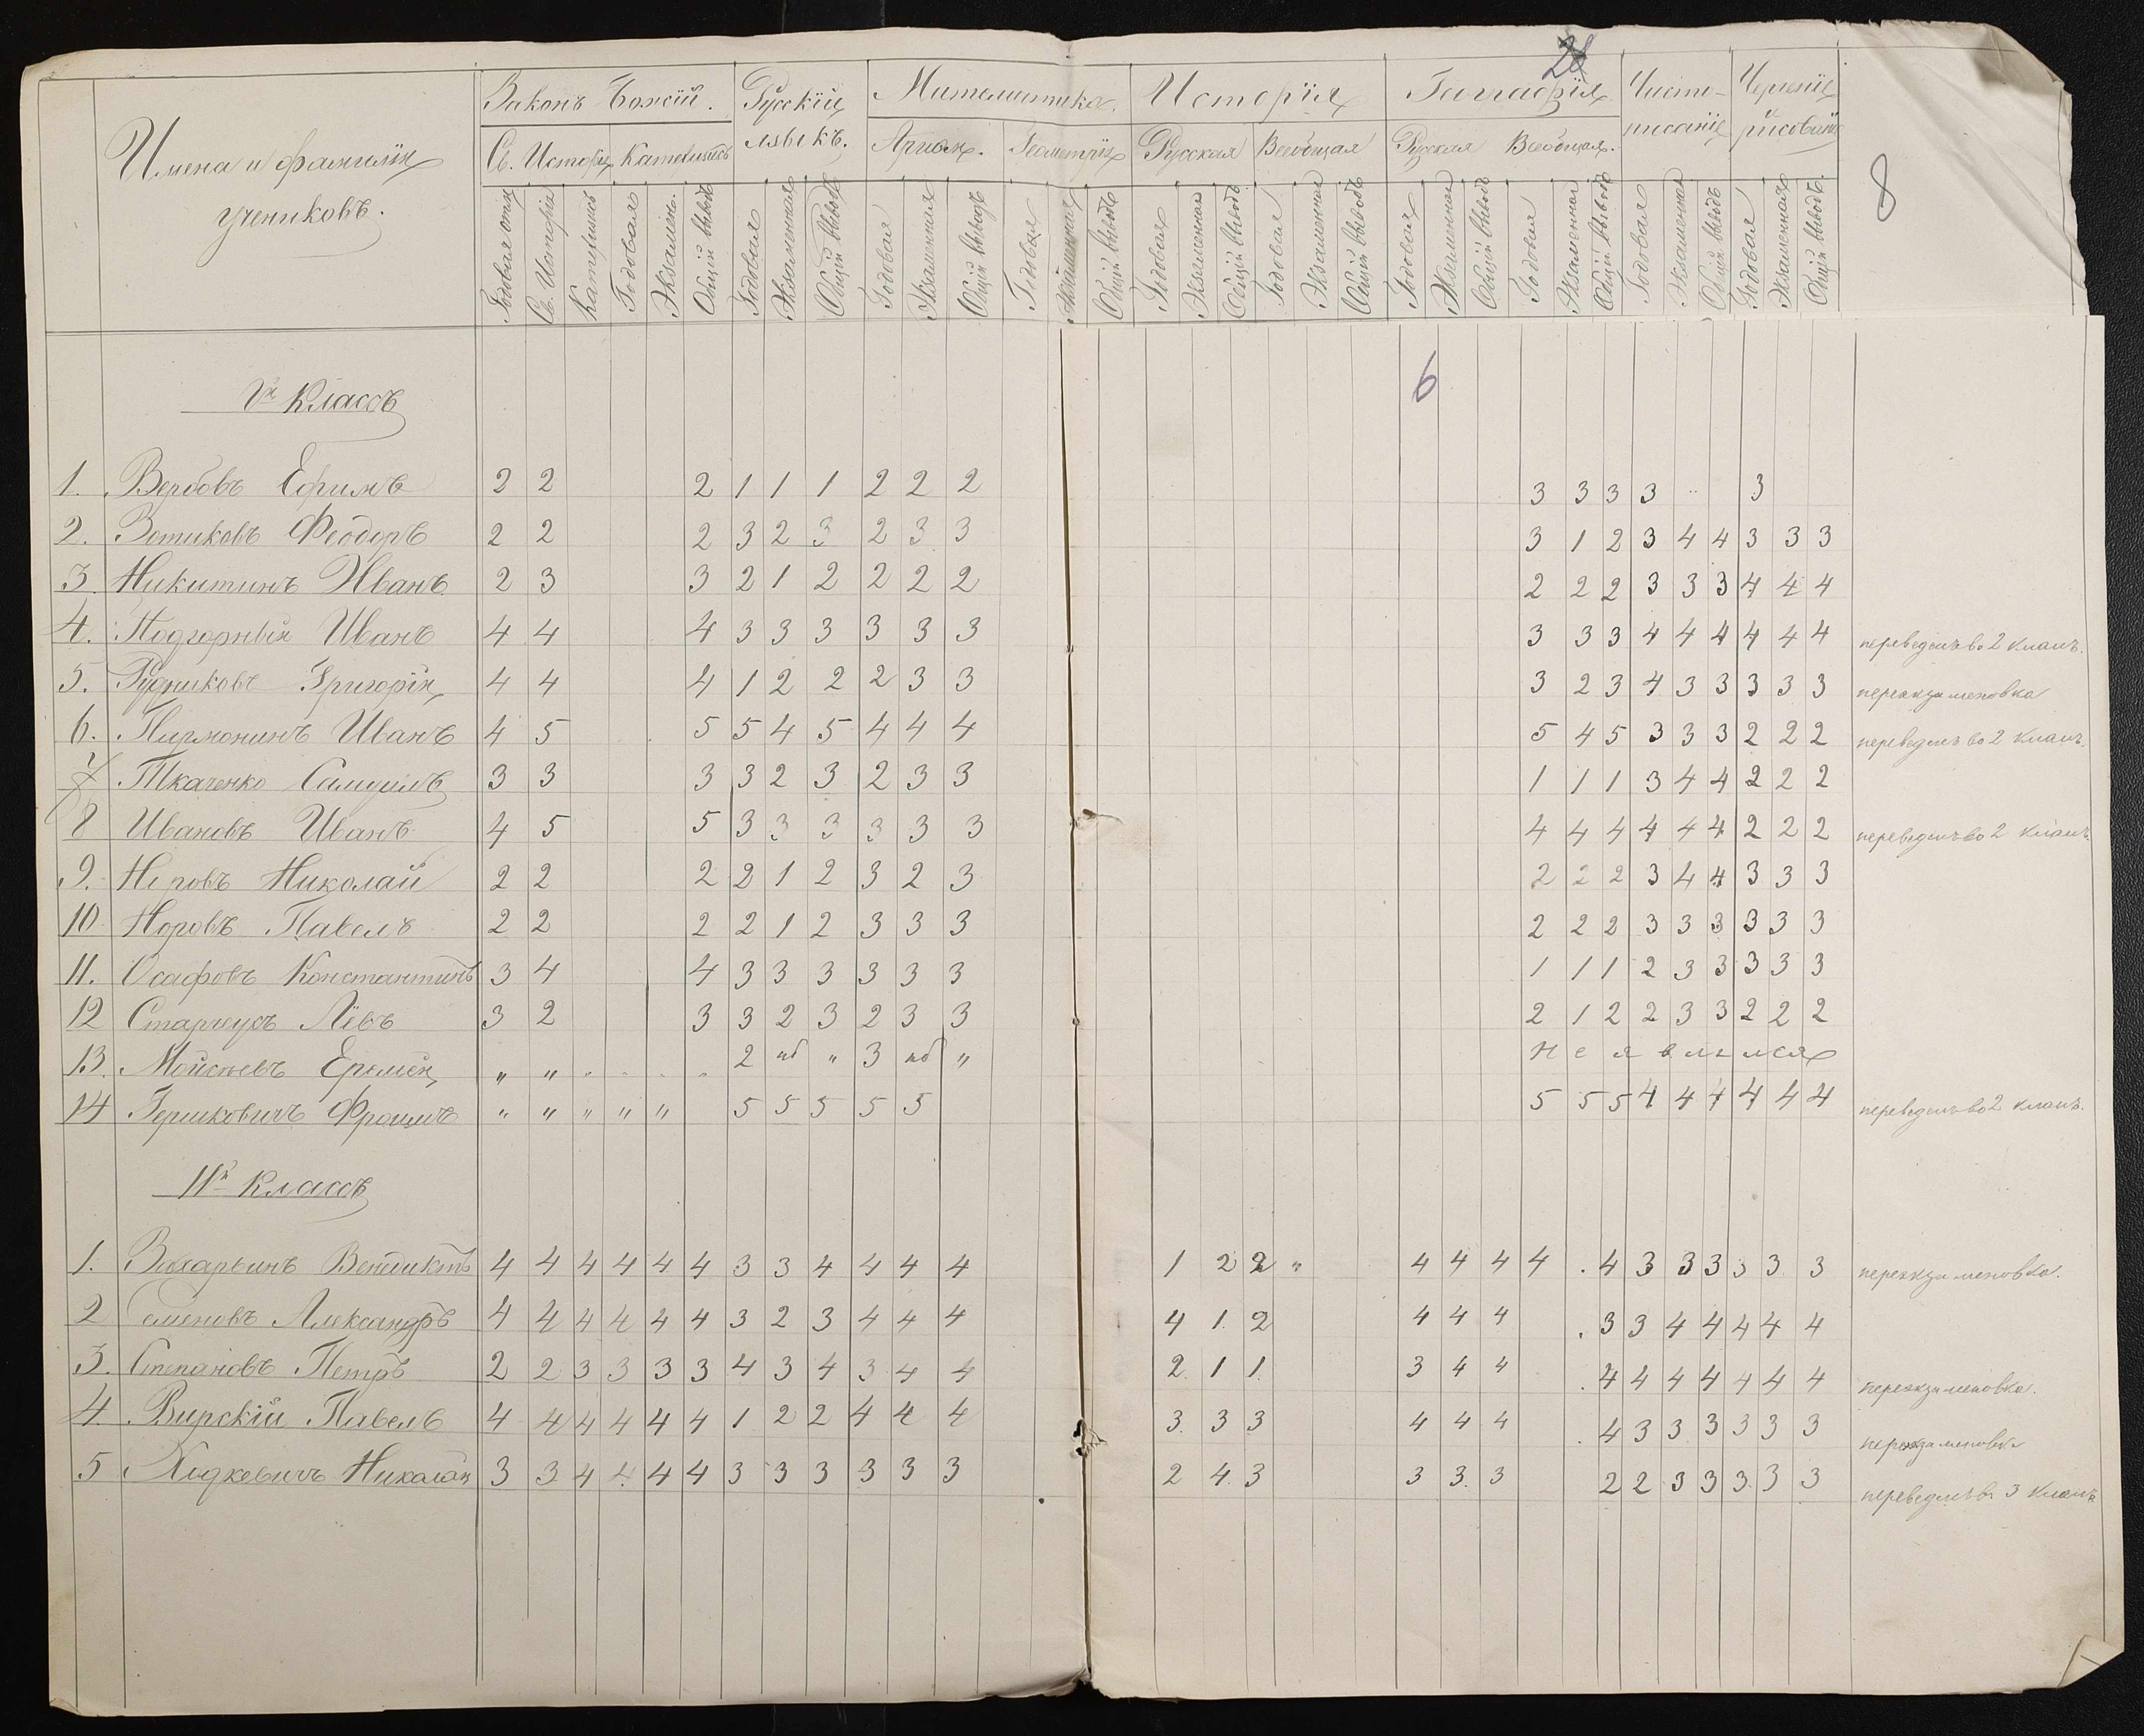 28
Законъ Божій. Русскій Математика. Исторія Географія Чисто- Черченіе
Имена и фамиліи учениковъ.
Св. Исторія Катехизисъ языкъ. Арифм. Геометрія Русская Всеобщая Русская Всеобщая. писаніе рисованіе
8
Годовая Св. Исторія Катехизисъ Годовая Экзамен. Общій выводъ Годовая Экзаменная Общій выводъ Годовая Экзаменная Общій выводъ Годовая Экзаменная Общій выводъ Годовая Экзаменная Общій выводъ Годовая Экзаменная Общій выводъ Годовая Экзаменная Общій выводъ Годовая Экзаменная Общій выводъ Годовая Экзаменная Общій выводъ Годовая Экзаменная Общій выводъ.
6
Iй Классъ
1. Вербовъ Ефимъ 2 2 2 1 1 1 2 2 2 3 3 3 3 3
2. Зотиковъ Феодоръ 2 2 2 3 2 3 2 3 3 3 1 2 3 4 4 3 3 3
3. Никитинъ Иванъ 2 3 3 2 1 2 2 2 2 2 2 2 3 3 3 4 4 4
4. Подгорный Иванъ 4 4 4 3 3 3 3 3 3 3 3 3 4 4 4 4 4 4 переведенъ во 2 классъ.
5. Рудниковъ Григорій 4 4 4 1 2 2 2 3 3 3 2 3 4 3 3 3 3 3 переэкзаменовка
6. Пармонинъ Иванъ 4 5 5 5 4 5 4 4 4 5 4 5 3 3 3 2 2 2 переведенъ во 2 классъ.
7 Ткаченко Самуилъ 3 3 3 3 2 3 2 3 3 1 1 1 3 4 4 2 2 2
8 Ивановъ Иванъ 4 5 5 3 3 3 3 3 3 4 4 4 4 4 4 2 2 2 переведенъ во 2 классъ
9. Неровъ Николай 2 2 2 2 1 2 3 2 3 2 2 2 3 4 4 3 3 3
10 Норовъ Павелъ 2 2 2 2 1 2 3 3 3 2 2 2 3 3 3 3 3 3
11. Осафовъ Константинъ 3 4 4 3 3 3 3 3 3 1 1 1 2 3 3 3 3 3
12 Старчеусъ Лёвъ 3 2 3 3 2 3 2 3 3 2 1 2 2 3 3 2 2 2
13. Мойсѣевъ Еремѣй „ „ „ 2 нб „ 3 нб „ Не явился
14 Гершковичъ Фроимъ „ „ „ „ „ 5 5 5 5 5 5 5 5 4 4 4 4 4 4 переведенъ во 2 классъ.
IIй классъ
1. Захарьинъ Венедиктъ 4 4 4 4 4 4 3 3 4 4 4 4 1 2 2 „ 4 4 4 4 . 4 3 3 3 3 3 3 переэкзаменовка.
2 Семеновъ Александръ 4 4 4 4 4 4 3 2 3 4 4 4 4 1. 2 4 4 4 . 3 3 4 4 4 4 4
3. Степановъ Петръ 2 2 3 3 3 3 4 3 4 3 4 4 2. 1 1. 3 4 4 . 4 4 4 4 4 4 4 переэкзаменовка.
4. Вирскій Павелъ 4 4 4 4 4 4 1 2 2 4 4 4 3. 3 3 4 4 4 . 4 3 3 3 3 3 3 переэкзаменовка
5 Ходкевичъ Николай 3 3 4 4 4 4 3 3 3 3 3 3 2 4. 3 3 3. 3 2 2 3 3 3. 3 3 переведенъ въ 3 классъ